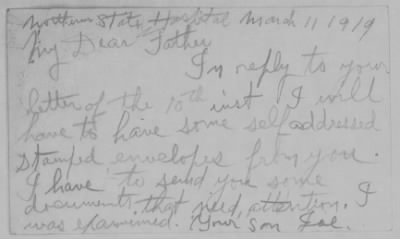 Northern State Hospital March 11 1919
My Dear Father
In reply to your
letter of the 10th inst I will
have to have some selfaddressed
stamped envelopes from you.
I have to send you some
documents that need attention. I
was examined. Your Son Joe.